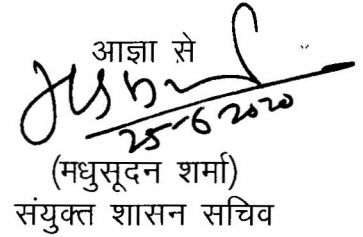 आज्ञा से
25-6-2020
(मधुसूदन शर्मा)
संयुक्त शासन सचिव